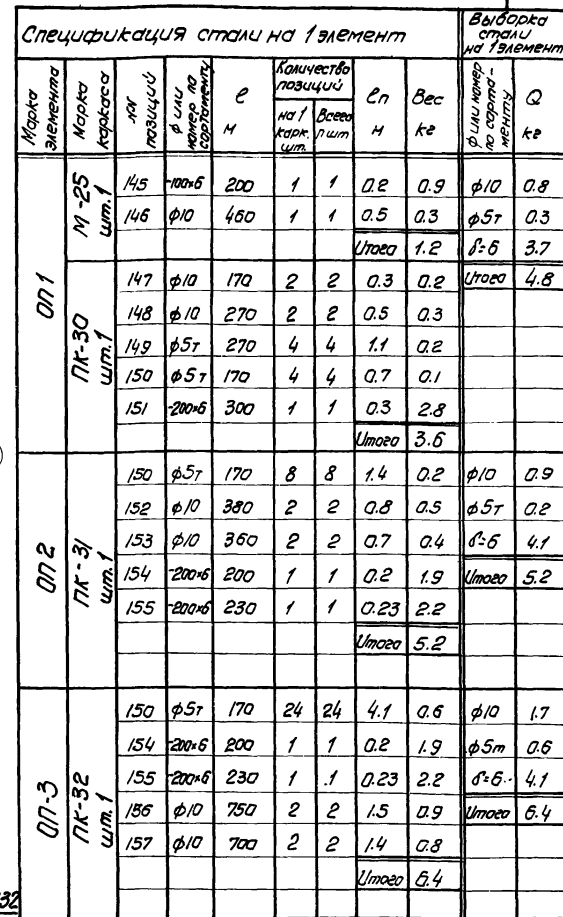 Спецификация стали на 1 элемент
Выборка стали на 1 элемент
Марка элемента | Марка каркаса | №№ позиций | ϕ или номер по сортаменту | ℓ м | Количество позиций | ℓп м | Вес кг | ϕ или номер по сорта-менту | Q кг
на 1 карк. шт. | Всего п шт
ОП 1 | М-25 шт.1 | 145 | -100×6 | 200 | 1 | 1 | 0.2 | 0.9 | ϕ10 | 0.8
146 | ϕ10 | 460 | 1 | 1 | 0.5 | 0.3 | ϕ5т | 0.3
Итого | 1.2 | δ=6 | 3.7
ПК-30 шт.1 | 147 | ϕ10 | 170 | 2 | 2 | 0.3 | 0.2 | Итого | 4.8
148 | ϕ10 | 270 | 2 | 2 | 0.5 | 0.3
149 | ϕ5т | 270 | 4 | 4 | 1.1 | 0.2
150 | ϕ5т | 170 | 4 | 4 | 0.7 | 0.1
151 | -200×6 | 300 | 1 | 1 | 0.3 | 2.8
Итого | 3.6
ОП 2 | ПК-31 шт.1 | 150 | ϕ5т | 170 | 8 | 8 | 1.4 | 0.2 | ϕ10 | 0.9
152 | ϕ10 | 380 | 2 | 2 | 0.8 | 0.5 | ϕ5т | 0.2
153 | ϕ10 | 360 | 2 | 2 | 0.7 | 0.4 | δ=6 | 4.1
154 | -200×6 | 200 | 1 | 1 | 0.2 | 1.9 | Итого | 5.2
155 | -200×6 | 230 | 1 | 1 | 0.23 | 2.2
Итого | 5.2
ОП-3 | ПК-32 шт.1 | 150 | ϕ5т | 170 | 24 | 24 | 4.1 | 0.6 | ϕ10 | 1.7
154 | -200×6 | 200 | 1 | 1 | 0.2 | 1.9 | ϕ5т | 0.6
155 | -200×6 | 230 | 1 | 1 | 0.23 | 2.2 | δ=6 | 4.1
156 | ϕ10 | 750 | 2 | 2 | 1.5 | 0.9 | Итого | 6.4
157 | ϕ10 | 700 | 2 | 2 | 1.4 | 0.8
Итого | 6.4
32